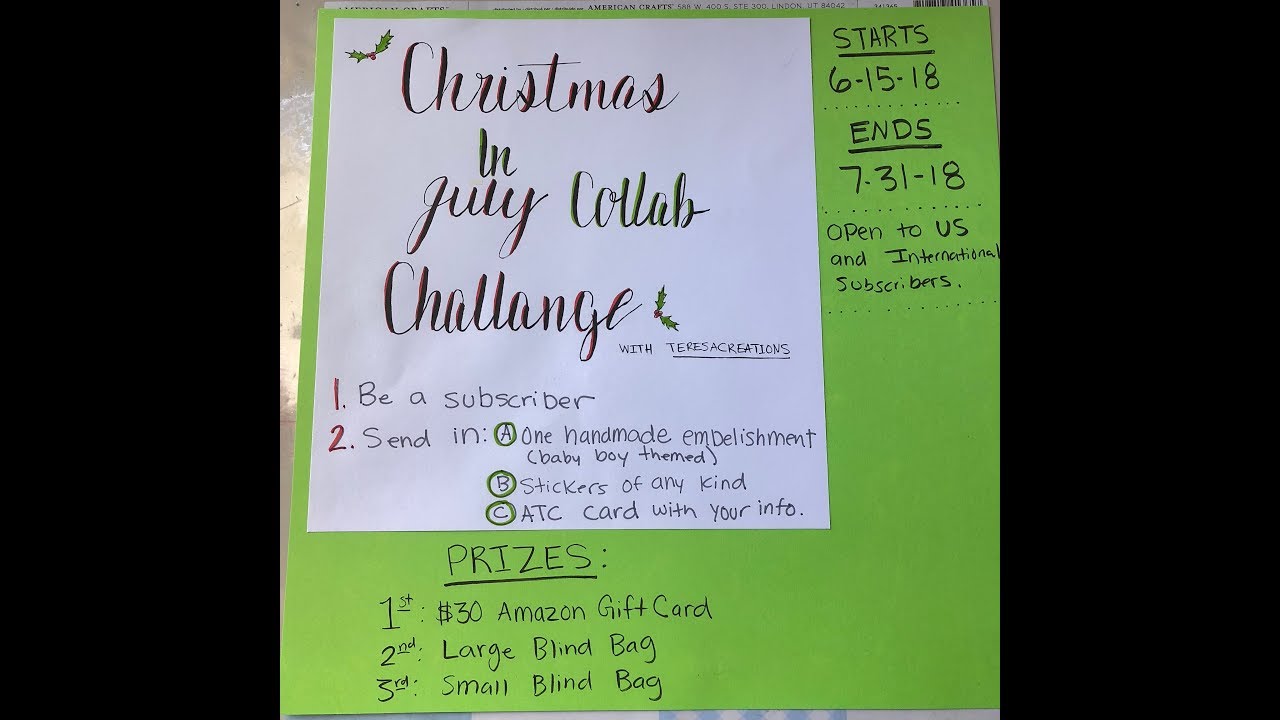 AMERICAN CRAFTS AMERICAN CRAFTS 588 W. 400 S. STE 300, LINDON, UT 84042
Christmas
In
July Collab
Challange
WITH TERESACREATIONS
1. Be a subscriber
2. Send in: A One handmade embelishment
(baby boy themed)
B Stickers of any kind
C ATC card with your info.
PRIZES:
1st: $30 Amazon Gift Card
2nd: Large Blind Bag
3rd: Small Blind Bag
STARTS
6-15-18
ENDS
7-31-18
Open to US
and International
Subscribers.